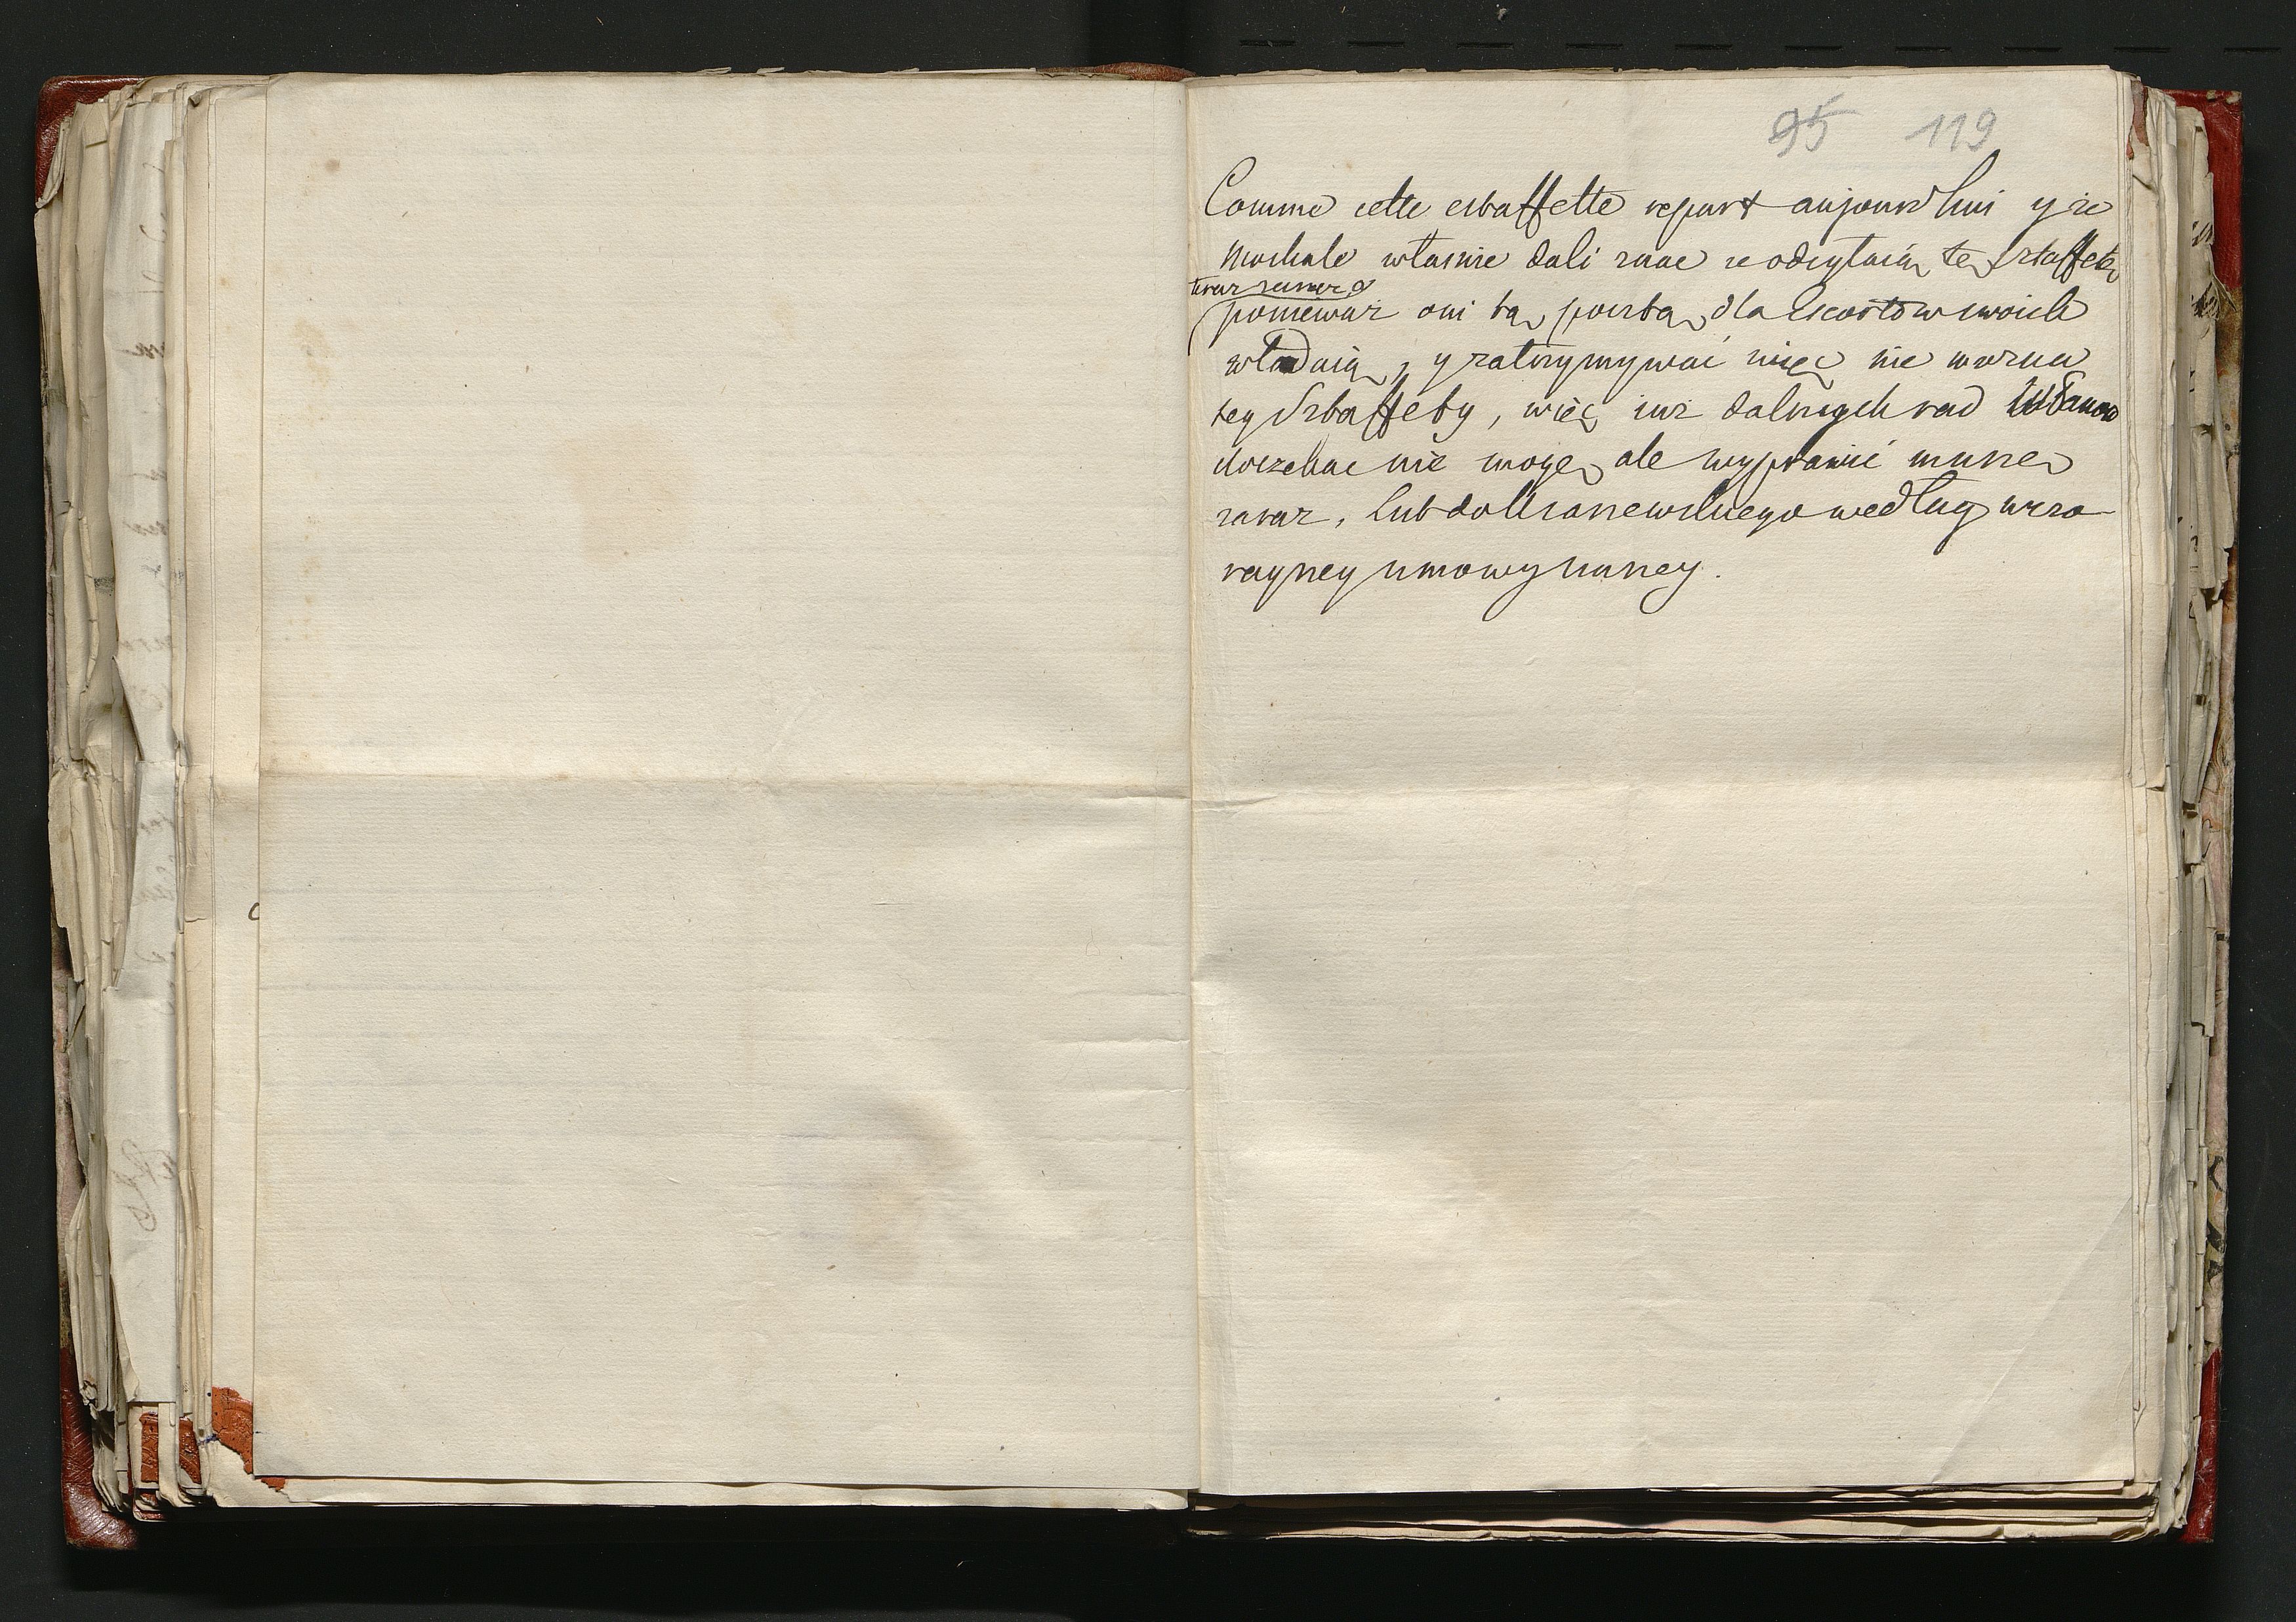 95 119
Comme cette estaffette repart aujourd'hui y ze
Moskale własnie dali znac ze odsyłaią tę Sztaffetę
teraz zaraz
ponieważ oni tą pocztą dla Escortow swoich
władaią, y zatrzymywać więc nie mozna
tey Sztaffety, więc iuz dalszych rad
czekac nie mogę ale wyprawić muszę
zaraz, lub do według wczo
rayszey umowy naszey.